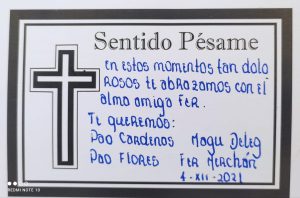 Sentido Pésame
En estos momentos tan dolo
rosos te abrazamos con el
alma amiga Fer.
Te queremos:
Pao Cardenos Magu Deleg
Pao Flores Fer Merchán
4-XII-2021
REDMI NOTE 10